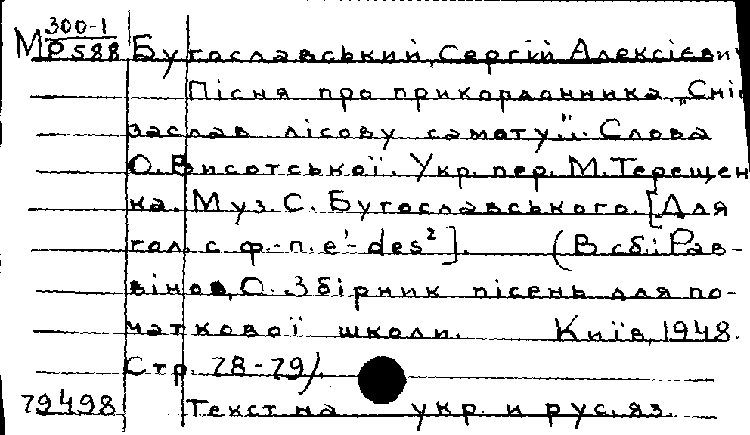 М 300-1
Р 588 Бугославський, Сергій Алексієви
Пісня про прикордонника. „Сніг
заслав лісову самоту...". Слова
О. Висотської. Укр. пер. М. Терещен
ка. Муз. С. Бугославського. [Для
гол. с ф-п. e'-des²]. (В сб.: Рав-
вінов, О. Збірник пісень для по-
чаткової школи. Київ, 1948.
Стр. 78-79).
79498 Текст на укр. и рус. яз.